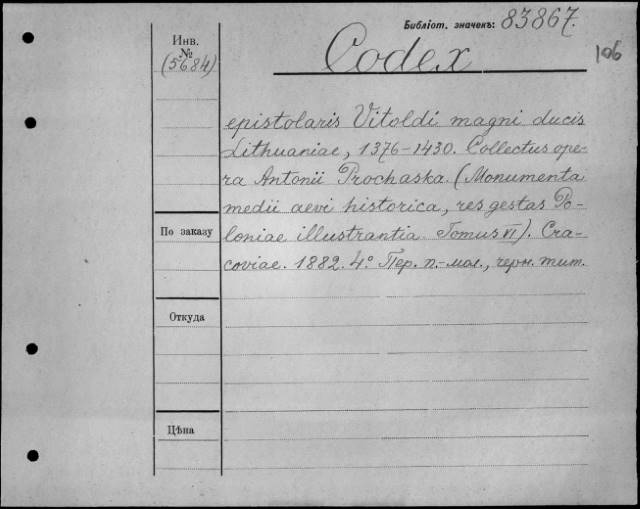 Библіот. значекъ: 83867.
106
Инв.
№
(5684)
Codex
epistolaris Vitoldi magni ducis
Lithuaniae, 1376–1430. Collectus ope-
ra Antonii Prochaska. (Monumenta
medii aevi historica, res gestas Po-
loniae illustrantia Tomus VI). Cra-
coviae. 1882. 4° Пер. п.-мол., черн. тит.
По заказу
Откуда
Цѣна